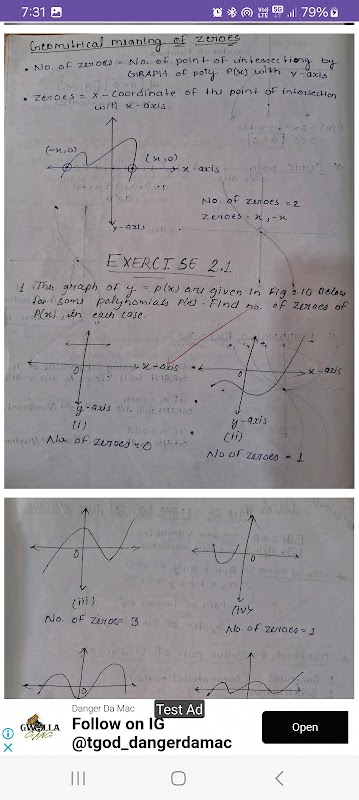 7:31
79%
Geomitrical meaning of zeroes
• No. of zeroes = No. of point of intersectiong by
GRAPH of poly P(x) with y-axis
• zeroes = x-coordinate of the point of intersection
with x-axis.
(-x,0)
(x,0)
x-axis
y-axis
No. of zeroes = 2
zeroes = x, -x
EXERCISE 2.1
1. The graph of y = p(x) are given in Fig 2.10 Below
for some polynomials P(x). Find no. of zeroes of
P(x), in each case.
0
x-axis
y-axis
(i)
No. of zeroes = 0
0
x-axis
y-axis
(ii)
No of zeroes = 1
0
(iii)
No. of zeroes = 3
0
(iv)
No. of zeroes = 1
0
0
Test Ad
Danger Da Mac
Follow on IG
@tgod_dangerdamac
Open